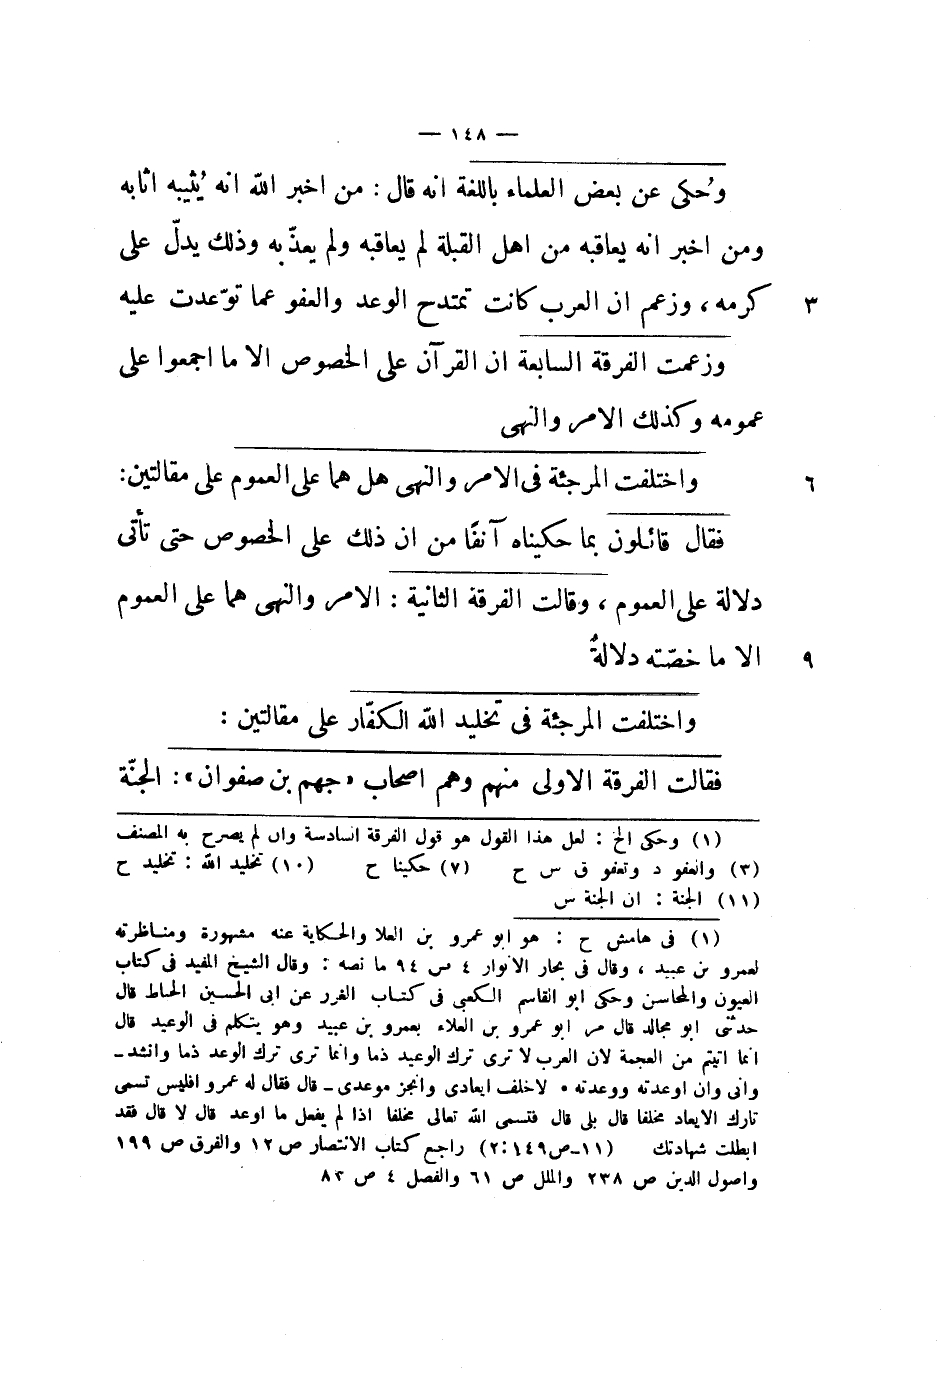 — ١٤٨ —
وُحكى عن بعض العلماء باللغة انه قال : من اخبر الله انه يُثيبه اثابه
ومن اخبر انه يعاقبه من اهل القبلة لم يعاقبه ولم يعذّبه وذلك يدلّ على
٣ كرمه ، وزعم ان العرب كانت تمتدح الوعد والعفو عما توّعدت عليه
وزعمت الفرقة السابعة ان القرآن على الخصوص الا ما اجمعوا على
عمومه وكذلك الامر والنهى
٦ واختلفت المرجئة فى الامر والنهى هل هما على العموم على مقالتين :
فقال قائلون بما حكيناه آنفًا من ان ذلك على الخصوص حتى تأتى
دلالة على العموم ، وقالت الفرقة الثانية : الامر والنهى هما على العموم
٩ الا ما خصّته دلالةٌ
واختلفت المرجئة فى تخليد الله الكفّار على مقالتين :
فقالت الفرقة الاولى منهم وهم اصحاب «جهم بن صفوان» : الجنّة
(١) وحكى الخ : لعل هذا القول هو قول الفرقة السادسة وان لم يصرح به المصنف
(٣) والعفو د وتعفو ق س ح (٧) حكينا ح (١٠) تخليد الله : تخليد ح
(١١) الجنة : ان الجنة س
(١) فى هامش ح : هو ابو عمرو بن العلا والحكاية عنه مشهورة ومناظرته
لعمرو بن عبيد ، وقال فى بحار الانوار ٤ ص ٩٤ ما نصه : وقال الشيخ المفيد فى كتاب
العيون والمحاسن وحكى ابو القاسم الكعبى فى كتاب الغرر عن ابى الحسين الخاط قال
حدثنى ابو مجالد قال مر ابو عمرو بن العلاء بعمرو بن عبيد وهو يتكلم فى الوعيد قال
انما اتيتم من العجمة لان العرب لا ترى ترك الوعيد ذما وانما ترى ترك الوعد ذما وانشد ـ
وانى وان اوعدته ووعدته • لاخلف ايعادى وانجز موعدى ـ قال فقال له عمرو افليس تسمى
تارك الايعاد مخلفا قال بلى قال فتسمى الله تعالى مخلفا اذا لم يفعل ما اوعد قال لا قال فقد
ابطلت شهادتك (١١ـص١٤٩:٢) راجع كتاب الانتصار ص ١٢ والفرق ص ١٩٩
واصول الدين ص ٢٣٨ والملل ص ٦١ والفصل ٤ ص ٨٣